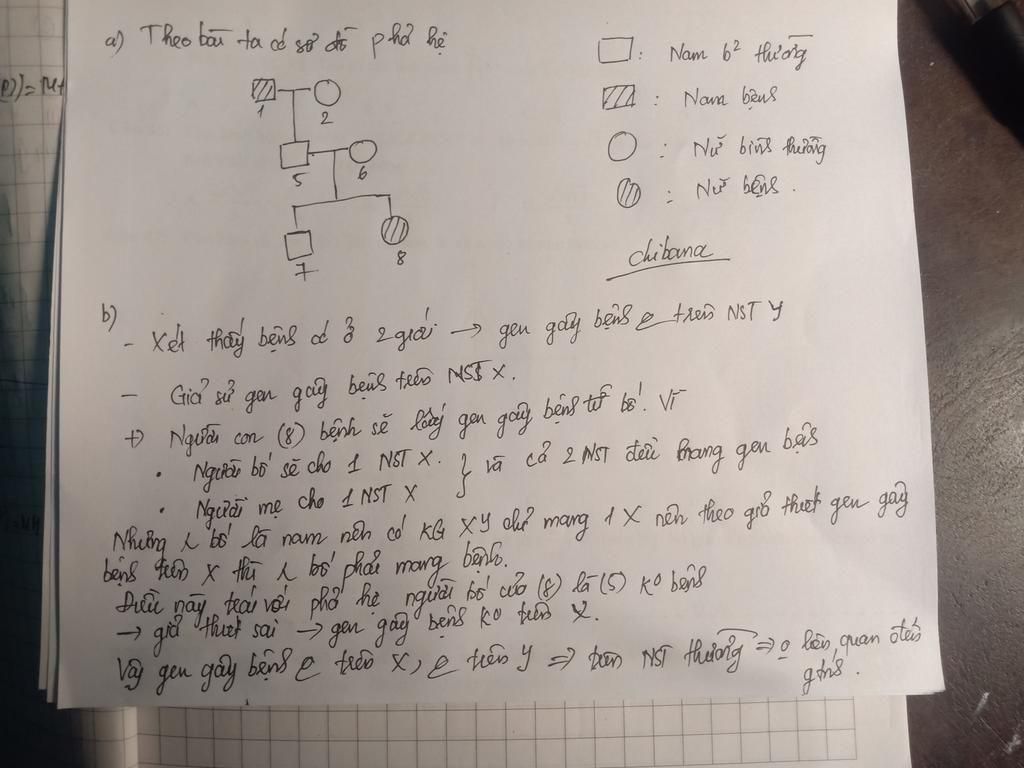 a) Theo bài ta có sơ đồ phả hệ
1
2
5
6
7
8
: Nam b² thường
: Nam bệnh
: Nữ bình thường
: Nữ bệnh.
chibana
b)
- Xét thấy bệnh có ở 2 giới → gen gây bệnh trên NST Y
- Giả sử gen gây bệnh trên NST X.
+) Người con (8) bệnh sẽ lấy gen gây bệnh từ bố. Vì
• Người bố sẽ cho 1 NST X. } và cả 2 NST đều mang gen bệnh
• Người mẹ cho 1 NST X
Nhưng bố là nam nên có KG XY chỉ mang 1 X nên theo giả thuyết gen gây
bệnh trên X thì bố phải mang bệnh.
Điều này trái với phả hệ người bố của (8) là (5) K⁰ bệnh
→ giả thuyết sai → gen gây bệnh K⁰ trên X.
Vậy gen gây bệnh trên X, trên Y ⇒ trên NST thường ⇒ liên quan đến
gtnh.